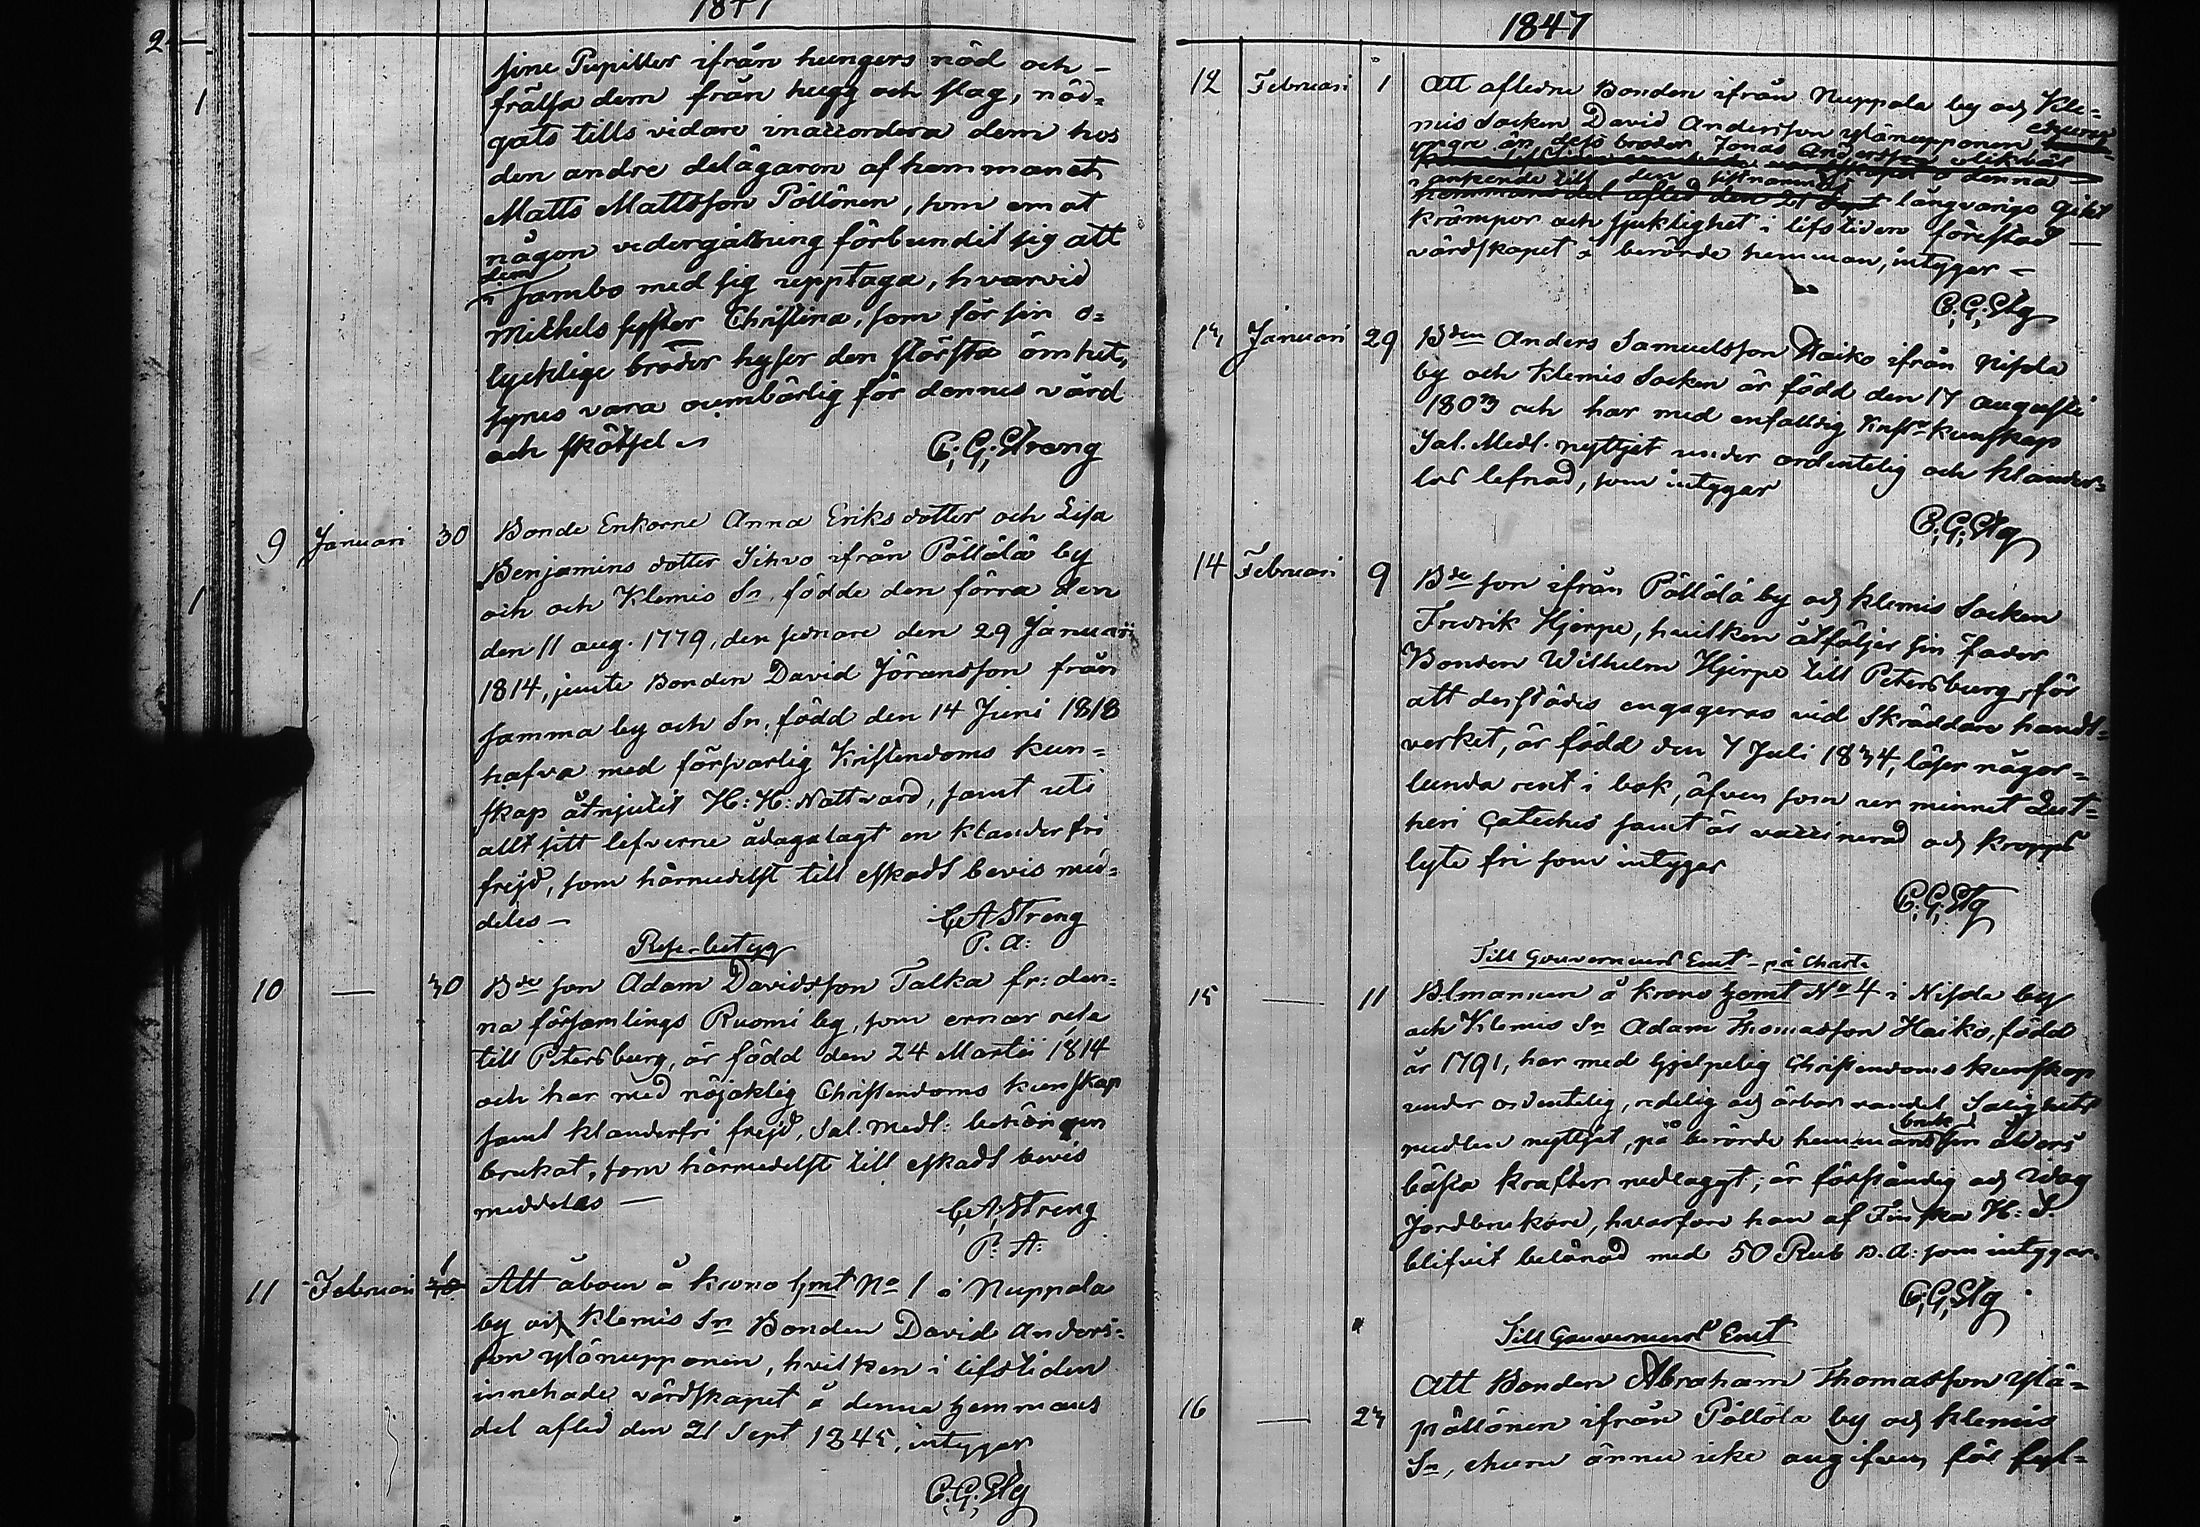 1847
2
1
1
sine Pupiller ifrån hungers nöd och –
frälsa dem från hugg och slag, nöd=
gats tills vidare inaccordera dem hos
den andre delägaren af hemmanet
Matts Mattsson Pöllönen, som emot
någon vedergällning förbundit sig att
dem
i sambo med sig upptaga, hvarvid
Mickels syster Christina, som för sin o=
lycklige broder hyser den största ömhet,
synes vara oumbärlig för dennes vård
och skötsel
C. G. Streng
9 Januari 30 Bonde Enkorne Anna Eriksdotter och Lisa
Benjamins dotter Sihvo ifrån Pöllälä by
och och Klemis Sn, födde den förra den
den 11 aug. 1779, den sednare den 29 Januari
1814, jemte Bonden David Jöransson från
samma by och Sn, född den 14 Juni 1818
hafva med försvarlig Kristendoms kun=
skap åtnjutit H: H: Nattvard, samt uti
allt sitt lefverne ådagalagt en klanderfri
frejd, som härmedelst till äskadt bevis med=
deles –
C A Streng
P. A:
Rese-betyg
10 — 30 Bde son Adam Davidsson Talka fr: den=
na församlings Ruomi by, som ernar resa
till Petersburg, är född den 24 Martii 1814
och har med nöjaktig Christendoms kunskap
samt klanderfri frejd, Sal. Medl: behörigen
brukat, som härmedelst till äskadt bevis
meddelas —
C. A. Streng
P. A:
11 Februari 1 Att åboen å krono Hmt No 1 i Nuppola
by och Klemis Sn Bonden David Anders=
son Ylönupponen, hvilken i lifstiden
innehade värdskapet å denna hemmans
del afled den 21 Sept 1845, intygar
C. G. Stg
1847
12 Februari 1 Att afledne Bonden ifrån Nuppola by och Kle=
mis Socken David Andersson Ylönupponen, ehuru
yngre än dess broder Jonas Andersson likväl
i anseende till den sistnämndes långvariga gikt
krämpor och sjuklighet i lifstiden förestod —
värdskapet å berörde hemman, intygar –
C. G. Stg
13 Januari 29 Bden Anders Samuelsson Haiko ifrån Nisola
by och Klemis Socken är född den 17 augusti
1803 och har med enfaldig Krist. kunskap
Sal. Medl. nyttjat under ordentelig och klander=
lös lefnad, som intygar
C. G. Stg
14 Februari 9 Bde son ifrån Pöllölä by och Klemis Socken
Fredrik Hjerpe, hvilken åtföljer sin fader
Bonden Wilhelm Hjerpe till Petersburg, för
att derstädes engageras vid Skräddare handt=
verket, är född den 7 Juli 1834, läser någor=
lunda rent i bok, äfven som ur minnet Lut=
heri Cateches samt är vaccinerad och kropps
lyte fri som intygar
C. G. Stg
Till Gouverneurs Emt – på Charta
15 — 11 Blmannen å krono Hemt No 4 i Nisola by
och Klemis Sn Adam Thomasson Haiko, född
år 1791, har med hjelpelig Christendoms kunskap
under ordentelig, redelig och ärbar vandel Salighets
medlen nyttjat, på berörde hemmans
bruk
sin ålders
bästa krafter nedlaggt; är förståndig och idog
Jordbrukare, hvarfore han af Finska H: S:
blifvit belönad med 50 Rub B. A: som intygar
C. G. Stg
Till Gouverneurs Emt
16 — 23 Att Bonden Abraham Thomasson Ylä=
pöllönen ifrån Pöllölä by och Klemis
Sn, ehuru ännu icke angifven för fyl=